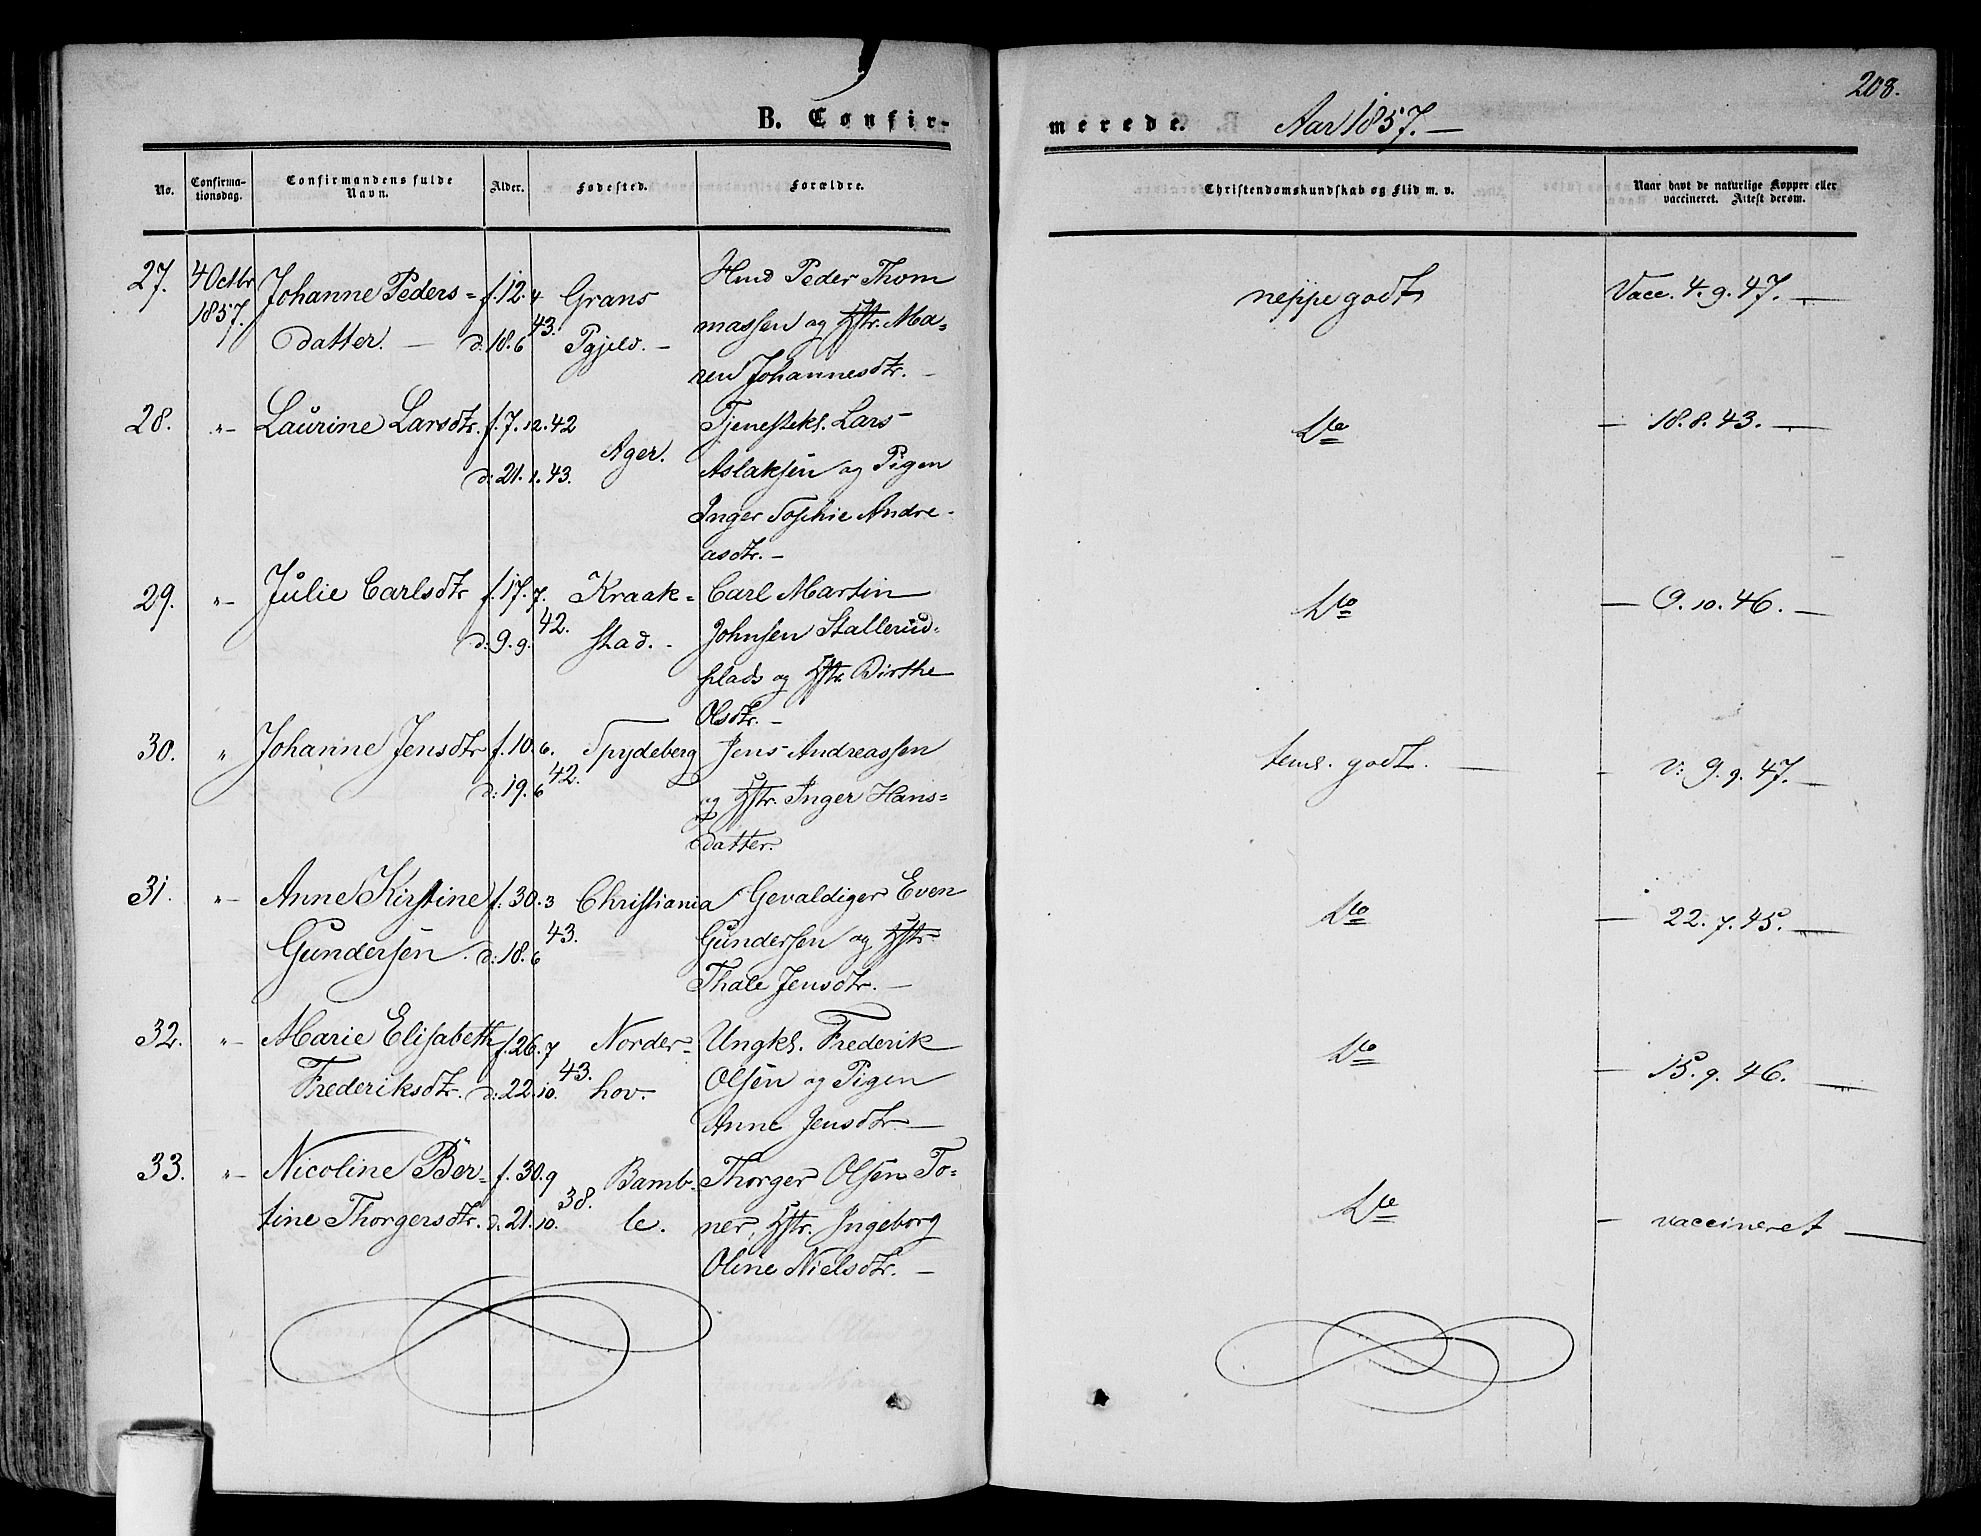 208.
B. Confirmerede. Aar 1857. —
No.
Confirmationsdag.
Confirmandens fulde Navn.
Alder.
Fødested.
Forældre.
Christendomskundskab og Flid m. v.
Naar havt de naturlige Kopper eller vaccineret. Attest derom.
27. 4 Octbr Johanne Peders= f. 12. 4 Grans Hmd Peder Thom neppe godt Vacc. 4. 9. 47. —
1857. datter. — d. 18. 6 43. Pgjeld. — massen og Hstr. Ma=
ren Johannesdtr. —
28. „— Laurine Larsdtr. f. 7. 12. 42 Tjenestekl. Lars Do — 18. 8. 43. —
d: 21. 1. 43. Ager. Aslaksen og Pigen
Inger Sophie Andre-
asdtr. —
29. „— Julie Carlsdtr f. 17. 7. Kraak= Carl Martin Do — 9. 10. 46. —
d: 9. 9. 42. stad. - Johnsen Stallerud-
plads og Hstr Birthe
Olsdtr. —
30. „ Johanne Jensdtr f. 10. 6. Spydeberg Jens Andreassen teml. godt. — - v: 9. 9. 47. —
d: 19. 6 42. og Hstr. Inger Hans=
datter.
31. „— Anne Kirstine f. 30. 3 Christiania Gevaldiger Even Do — 22. 7. 45. —
Gundersen. d: 18. 6 43. Gundersen og Hstr-
Thale Jensdtr. —
32. „— Marie Elisabeth f. 26. 7 Norder= Ungkl. Frederik Do — 15. 9. 46. —
Frederiksdtr. d: 22. 10. 43. hov. Olsen og Pigen
Anne Jensdtr —
33. „— Nicoline Ber= f. 30. 9 Bamb- Thorger Olsen To= Do — vaccineret —
tine Thorgersdtr. d. 21. 10. 38. le. ner, Hstr. Ingeborg
Oline Nielsdtr. —